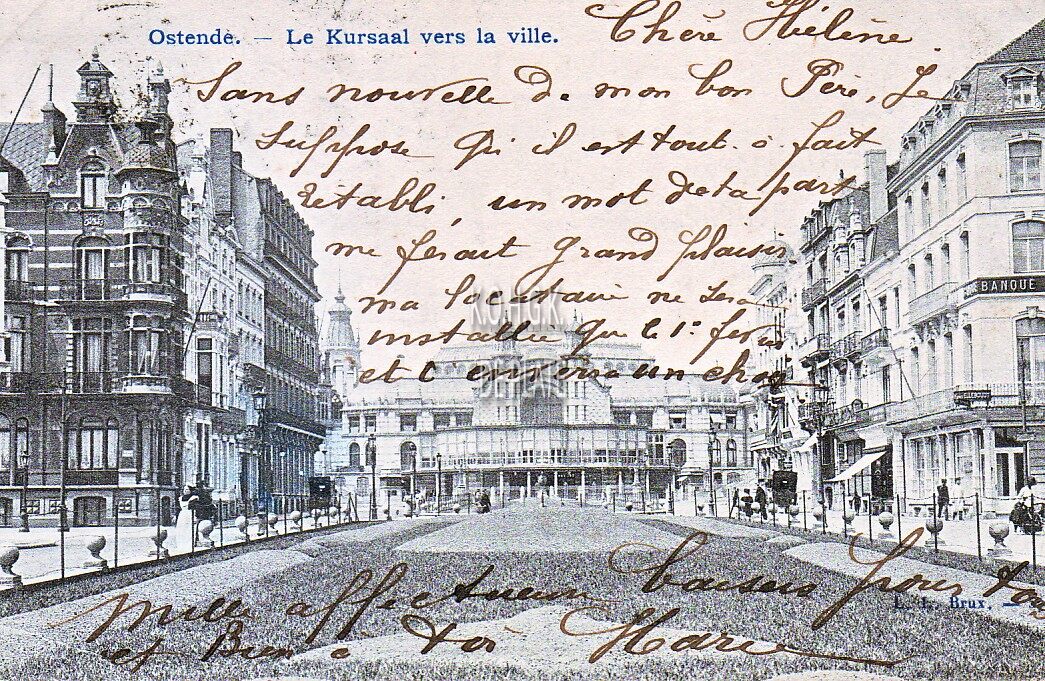 Ostende. — Le Kursaal vers la ville.
Chère Hélène.
Sans nouvelle de mon bon Père, Je
suppose qu'il est tout à fait
rétabli, un mot de ta part
me ferait grand plaisir.
ma locataire ne sera
installée que le 1r
et t'enverra un
BANQUE
K.O.H.G.K.
DE PLATE
Mille affectueux baisers pour toi
et Bien à toi Marie
L. L. Brux. —